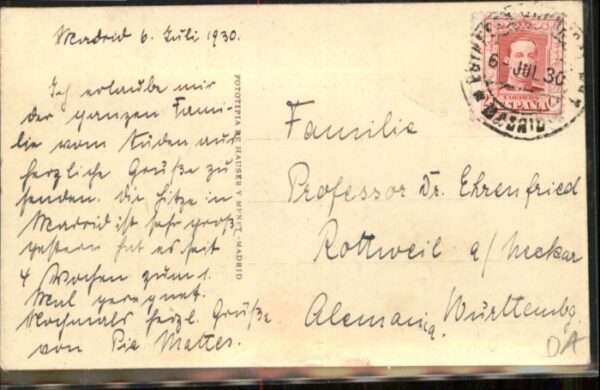 Madrid 6. Juli 1930.
Ich erlaube mir
der ganzen Fami-
lie vom Süden aus
herzliche Grüße zu
senden. Die Hitze in
Madrid ist sehr groß
gestern hat es seit
4 Wochen zum 1.
Mal geregnet.
Nochmals herzl. Grüße
von Pia Mattes.
FOTOTIPIA DE HAUSER Y MENET.-MADRID
Familie
Professor Dr. Ehrenfried
Rottweil a/Neckar
Alemania. Württembg.
6 JUL 30
MADRID
ESPAÑA
DA